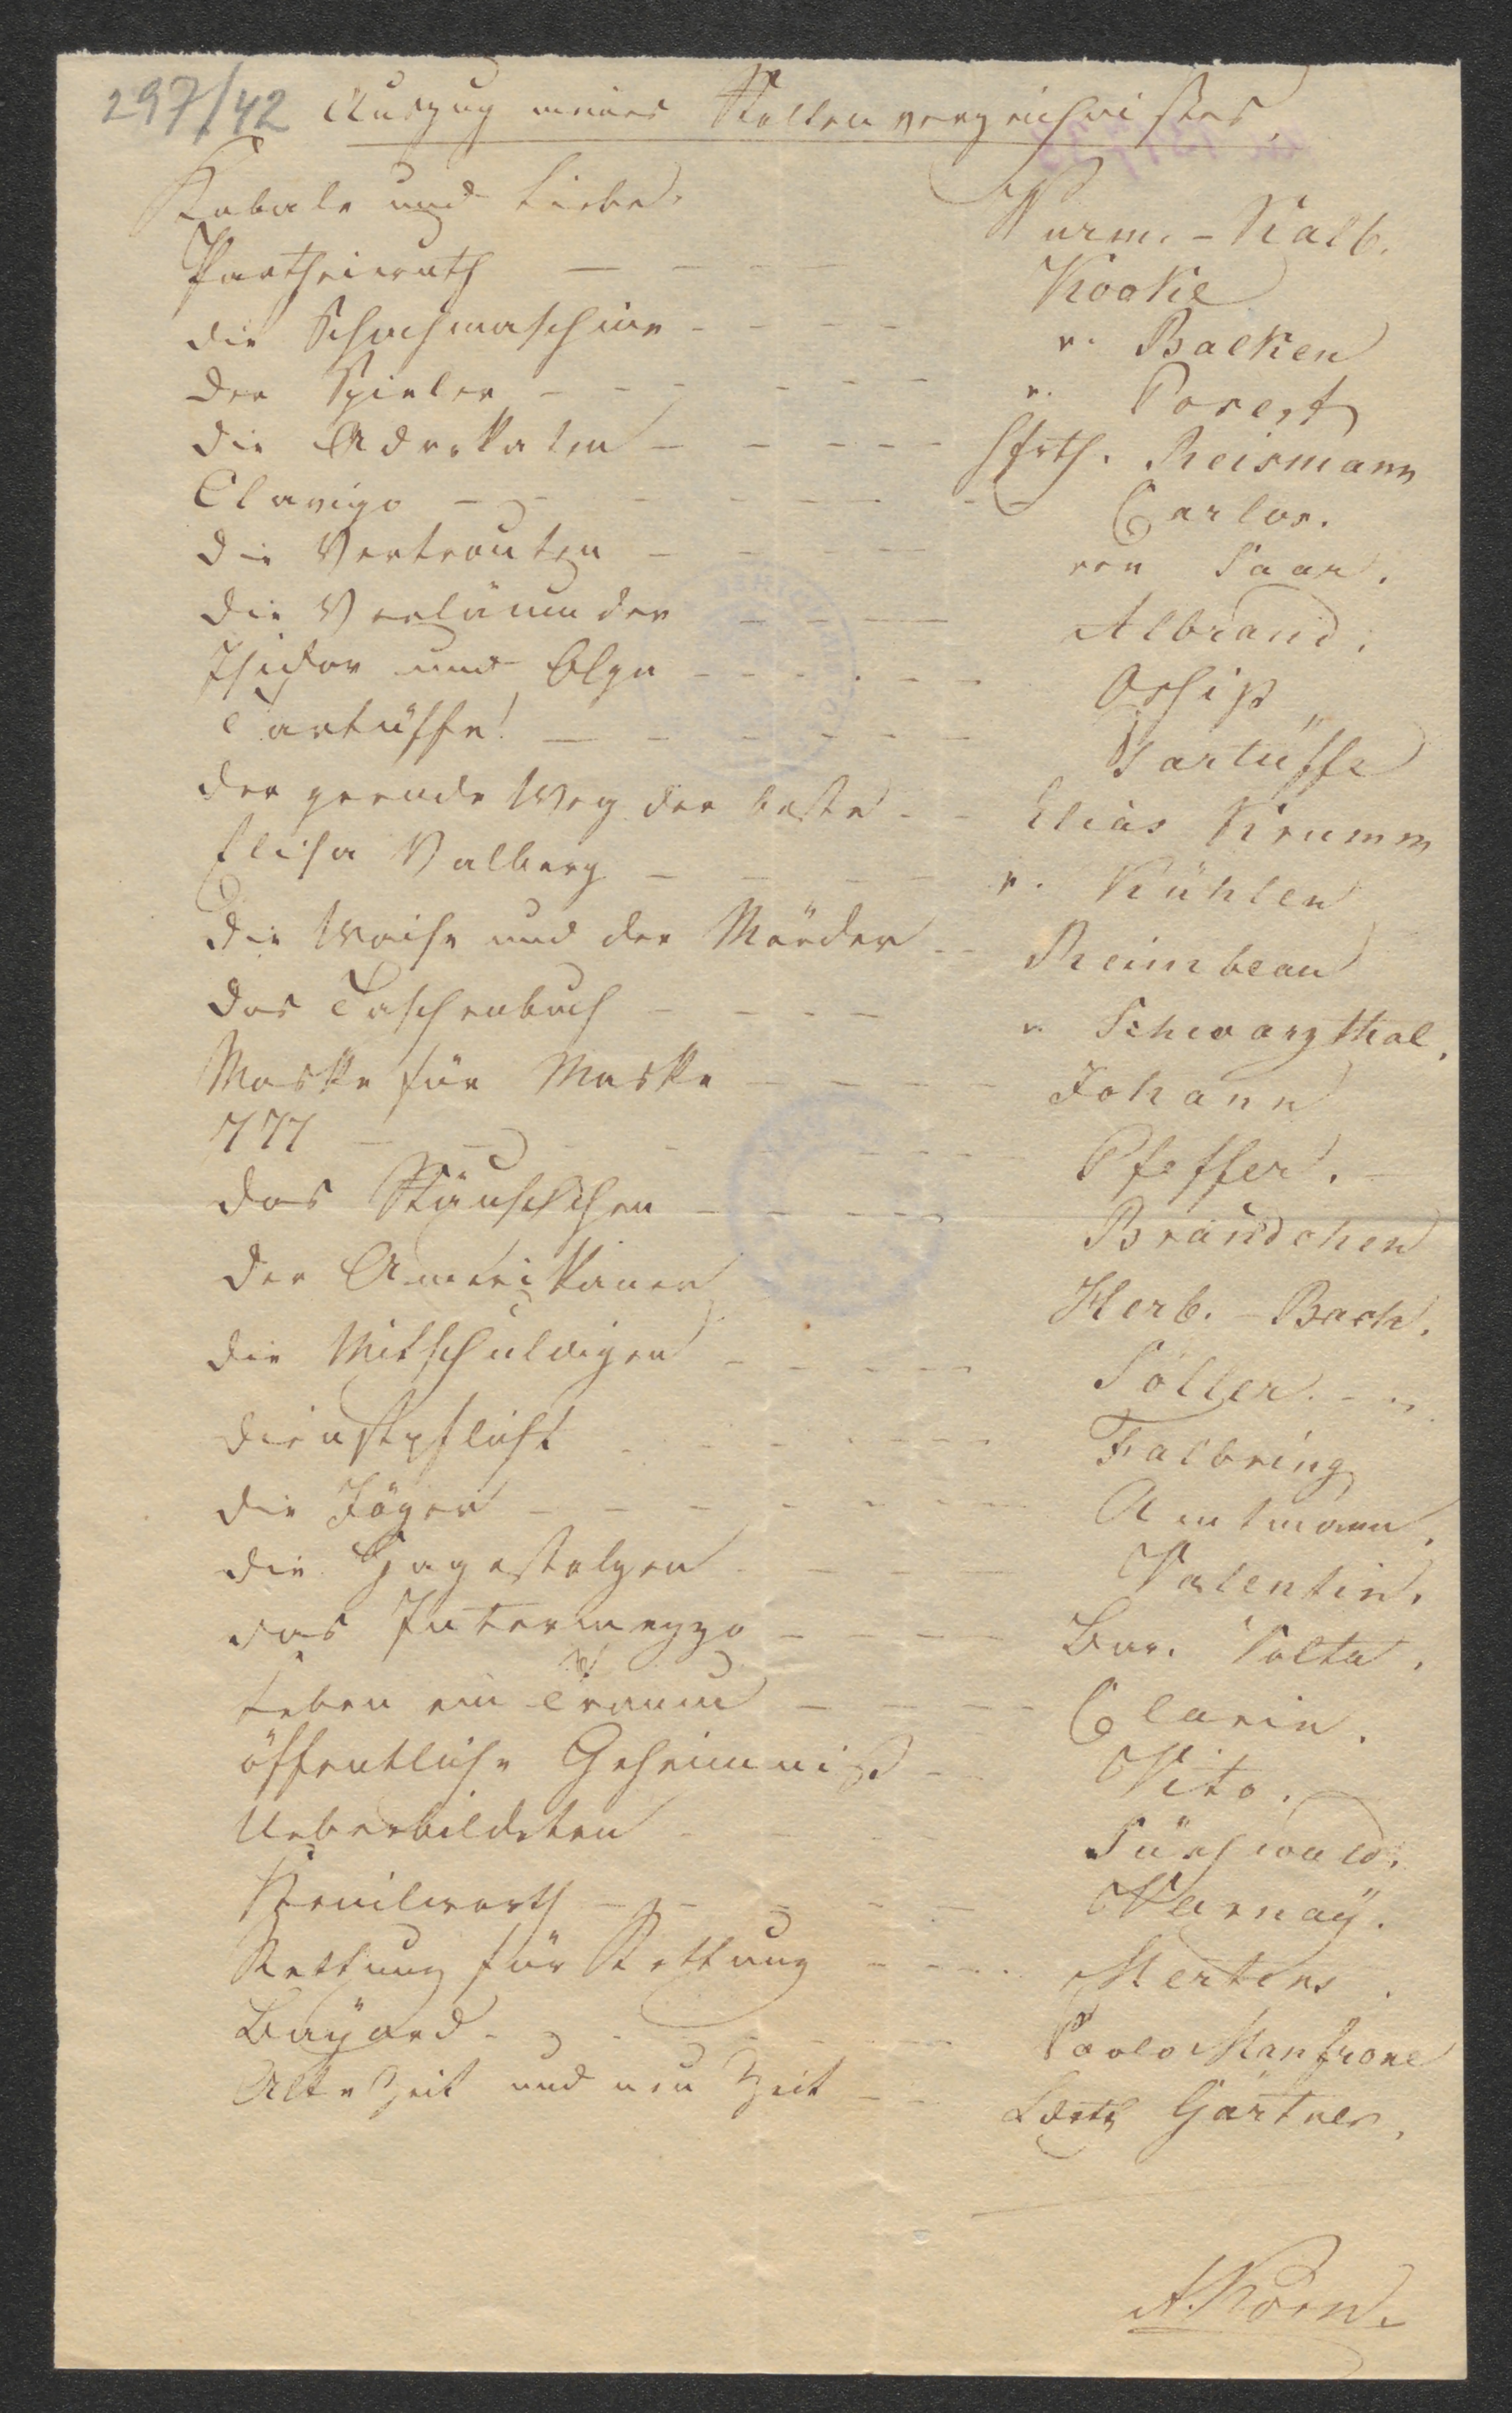 297/42 Auszug meines Rollenverzeichnisses.
Kabale und Liebe. Wurm. - Kalb.
Partheiwuth - - - - Kooke
die Schachmaschine - - - - v. Balken
der Spieler - - - - - - - v. Posert
die Advokaten - - - - - Hfrth. Reismann
Clavigo - - - - - - - - Carlos.
die Vertrauten - - - - - von Saar.
die Verläumder - - - - Albrand.
Isidor und Olga - - - . - - Ossip
Tartüffe! - - - - - - - Tartüffe
der gerade Weg der beste - - Elias Krumm
Elisa Valberg - - - - - v. Kühlen
die Waise und der Mörder - - Reimbeau
das Taschenbuch - - - - v. Schwarzthal.
Maske für Maske - - - - - Johann
777 - - - - - - - - - Pfeffer. -
das Räuschchen - - - - - Brandchen
der Amerikaner Herb. - Bach.
die Mitschuldigen - - - - - Söller. - -.
Dienstpflicht - - - - - - Falbring
die Jäger - - - - - - - - Amtmann.
die Hagestolzen - - - - - Valentin.
das Intermezzo - - - - Bar. Volta.
Leben ein Traum - - - - Clarin.
öffentliche Geheimniß - - Vito.
Ueberbildeten - - - -
Kenilworth - - - - - - Varnaÿ.
Rettung für Rettung - - - . Mertens.
Baÿard - - - - - - - Paolo Manfrone
Alte Zeit und neu Zeit - - Gärtner.
A. Korn.